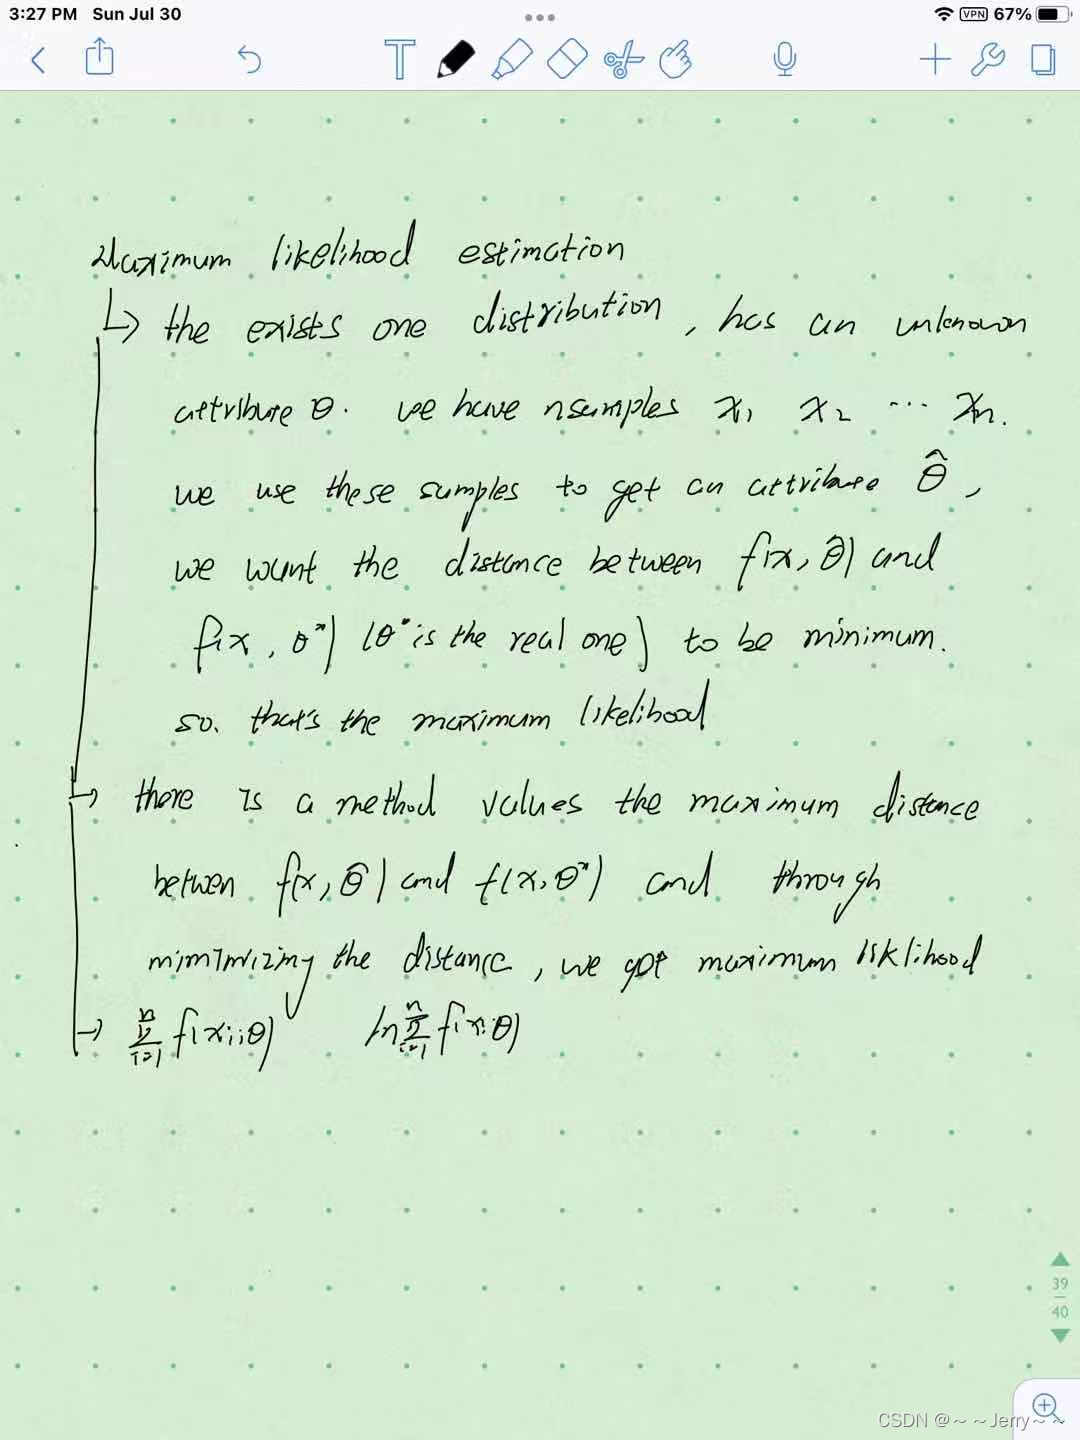 3:27 PM Sun Jul 30
VPN 67%
T
Maximum likelihood estimation
↳ the exists one distribution, has an unknown
attribute θ. we have n samples x₁ x₂ ... xₙ.
we use these samples to get an attribute θ̂,
we want the distance between f(x, θ̂) and
f(x, θ*) (θ* is the real one) to be minimum.
so. that's the maximum likelihood
→ there is a method values the maximum distance
betwen f(x, θ̂) and f(x, θ*) and through
mimimizing the distance, we got maximum liklihood
→ f(xi;θ) ln f(xi θ)
39
40
CSDN @~~Jerry~~